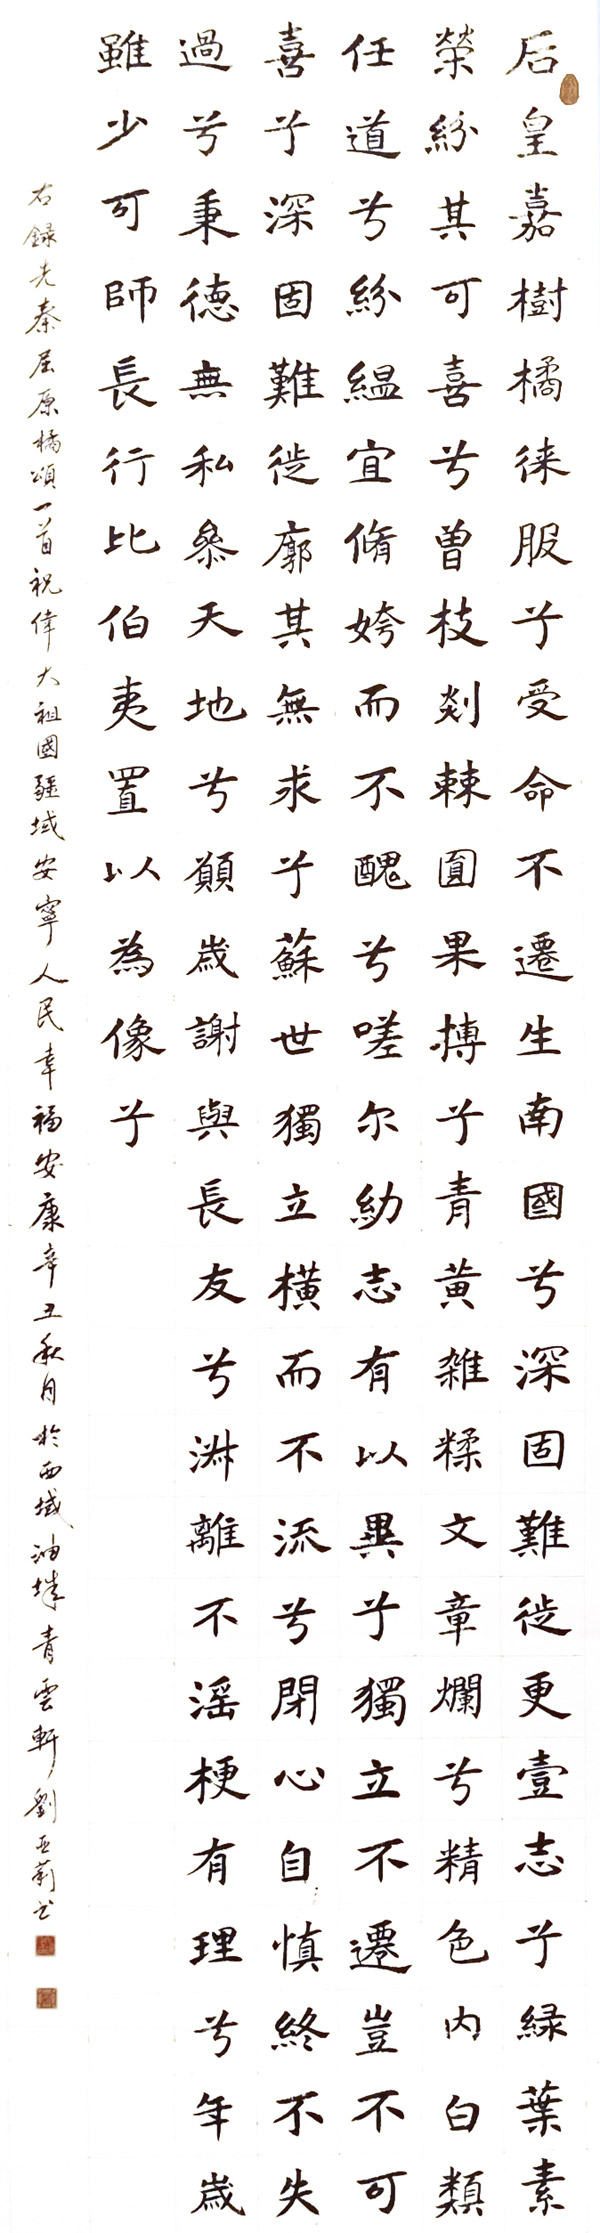 后皇嘉樹橘徠服兮受命不遷生南國兮深固難徙更壹志兮緑葉素
榮紛其可喜兮曾枝剡棘圓果摶兮青黄雜糅文章爛兮精色内白類
任道兮紛緼宜脩姱而不醜兮嗟尔幼志有以異兮獨立不遷豈不可
喜兮深固難徙廓其無求兮蘇世獨立横而不流兮閉心自慎終不失
過兮秉德無私參天地兮願歲謝與長友兮淋離不滛梗有理兮年歲
雖少可師長行比伯夷置以為像兮
右録先秦屈原橘頌一首祝偉大祖國疆域安寧人民幸福安康辛丑秋月於西域油城青雲軒劉亚莉书